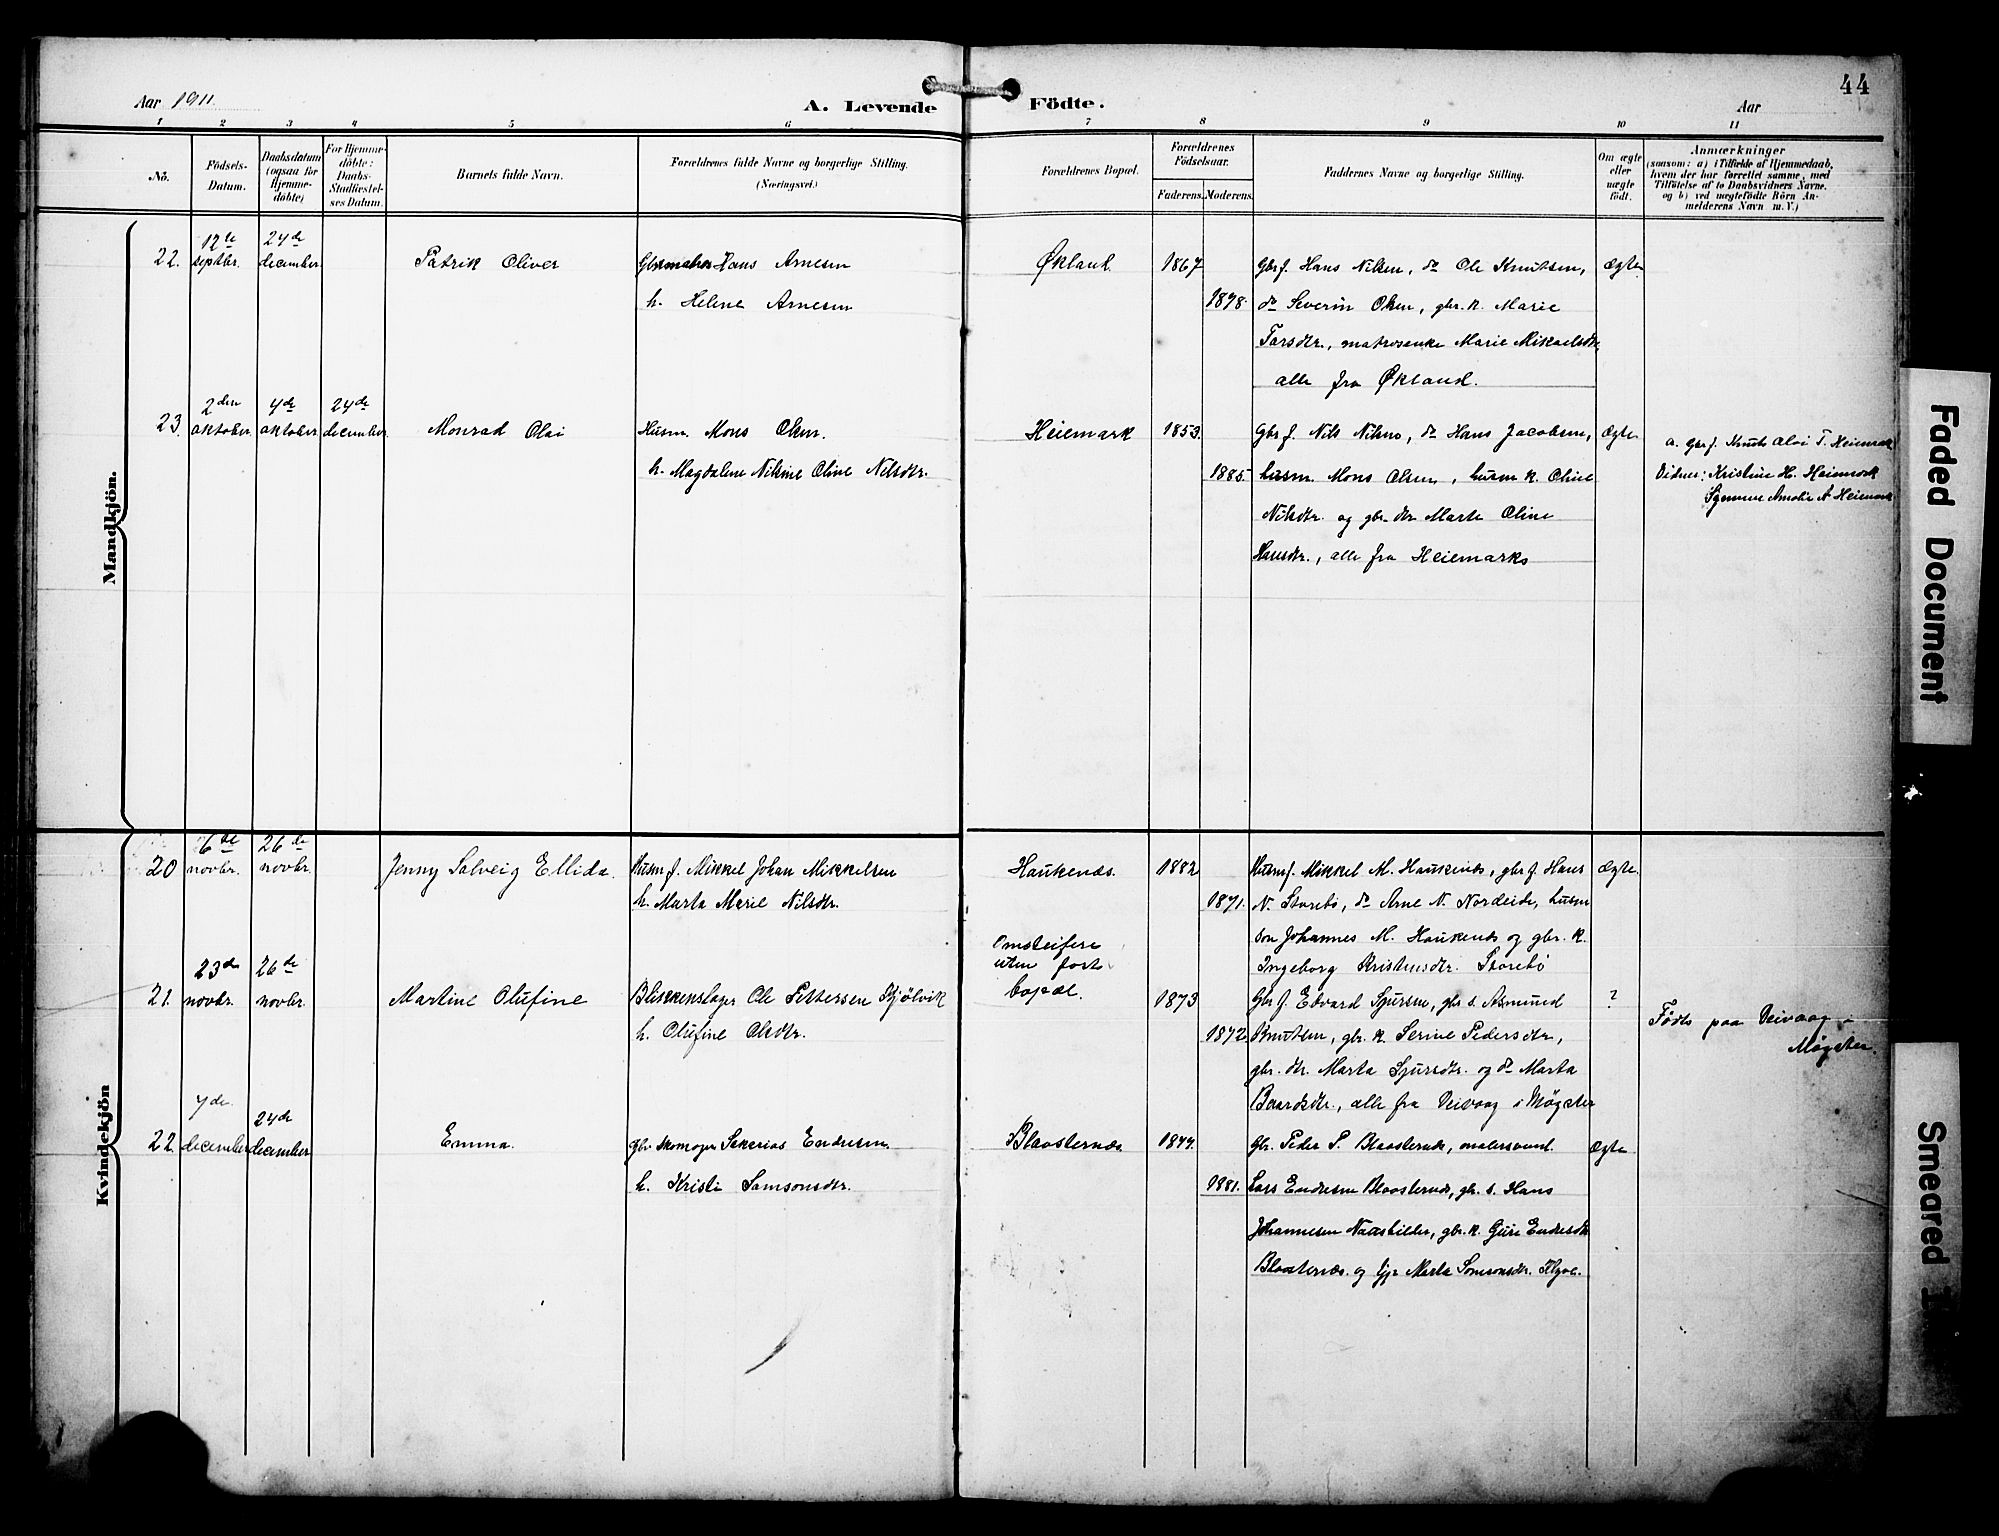 44
Aar 1911.
A. Levende Födte.
Aar
1 2 3 4 5 6 7 8 9 10 11
No.
Födsels-
Datum.
Daabsdatum
(ogsaa for
Hjemme-
döbte)
For Hjemme-
döbte:
Daabs-
Stadfæstel-
ses Datum.
Barnets fulde Navn.
Forældrenes fulde Navne og borgerlige Stilling.
(Næringsvei.)
Forældrenes Bopæl.
Forældrenes
Födselsaar.
Faderens. Moderens.
Faddernes Navne og borgerlige Stilling.
Om ægte
eller
uægte
födt.
Anmærkninger
(saasom: a) i Tilfælde af Hjemmedaab,
hvem der har forrettet samme, med
Tilföielse af to Daabsvidners Navne.
og b) ved uægtefödte Börn An-
melderens Navn m. V.)
Mandkjön.
22.
12te
septbr.
24de
december.
Patrik Oliver
Hans Arnesen
h. Helene Arnesen
Økland.
1867
1878.
Gbr.f. Hans Nilsen, do Ole Knutsen,
do Severin Olsen, gbr.k. Marie
Larsdtr., Marie Mikaelsdtr.
alle fra Økland.
Ægte
23.
2den
oktober.
4de
oktober
24de
december.
Monrad Olai
Husm. Mons Olsen.
h. Magdalene Nilsine Oline Nilsdtr.
Heiemark
1853.
1885.
Gbr f. Nils Nilsen, do Hans Jacobsen,
husm. Mons Olsen, husm k. Oline
Nilsdtr. og gbr. dtr Marte Oline
Hansdtr., alle fra Heiemark
Ægte
a. Gbr f. Knut Olai T. Heiemark
Vidner: Kristine H. Heiemark
Amalie A Heiemark
Kvindekjön
20
6te
novbr.
26de
novbr.
Jenny Solveig Ellida.
Husm f. Mikkel Johan Mikkelsen
h. Marta Marie Nilsdtr.
Haukenæs.
1882
1871.
Husmf. Mikkel M. Haukenæs, gbr f. Hans
N. Storebö, do Arne N. Nordeide, husm
søn Johannes M. Haukenæs og gbr. k.
Ingeborg Kristensdtr. Storebö
Ægte.
21.
23de
novbr.
26de
novbr.
Martine Olufine
Blikkenslager Ole Pettersen Kjölvik
h. Olufine Olsdtr.
Omsteifere
uten fast
bopæl.
1873
1872
Gbr f. Edvard Sjursen, gbr s. Asmund
Knutsen, gbr. k. Serine Pedersdtr,
gbr. dtr. Marta Sjursdtr. og do Marta
Baardsdtr., alle fra Veivaag i Møgster
?
Födt paa Veivaag i
Møgster.
22.
7de
december
24de
december
Emma.
Gbr Skomager Sakarias Endresen
h. Kristi Samsonsdtr.
Blaasternæs.
1877.
1881.
Gbr. Peder S. Blaasternæs, malersvend
Lars Endresen Blaasternæs, gbr. s. Hans
Johannesen Naasbilder, gbr. k. Guri Endresdtr
Blaasternæs. og Marta Samsonsdtr.
Ægte
Faded Document
Smeared